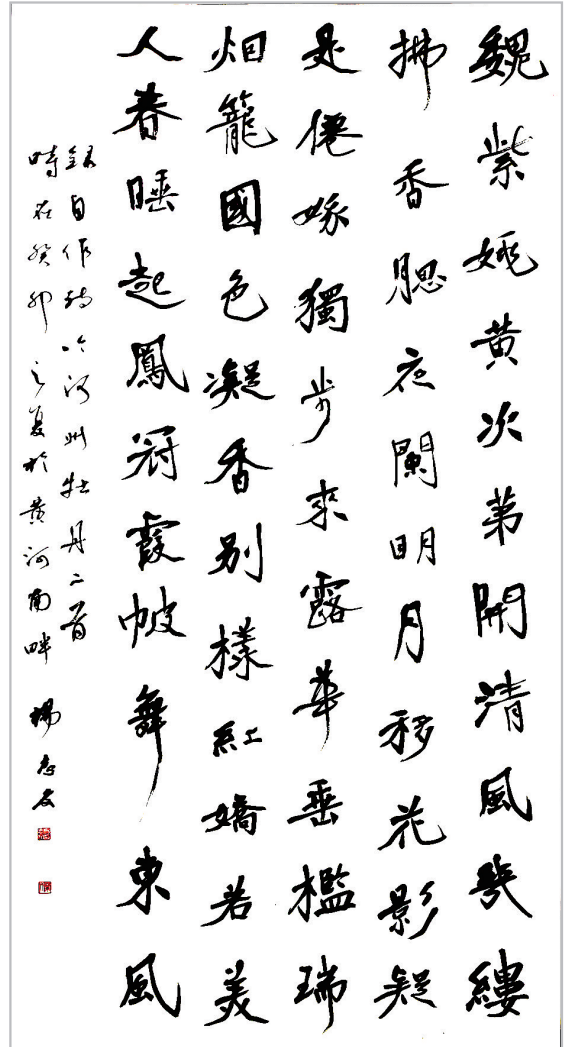 魏紫姚黄次第開清風幾縷
拂香腮夜闌明月移花影疑
是僊娥獨步來露華垂檻瑞
烟籠國色凝香别樣紅嬌若美
人春睡起鳳冠霞帔舞東風
録自作詩咏河州牡丹二首
時在癸卯之夏於黄河南畔 楊志友